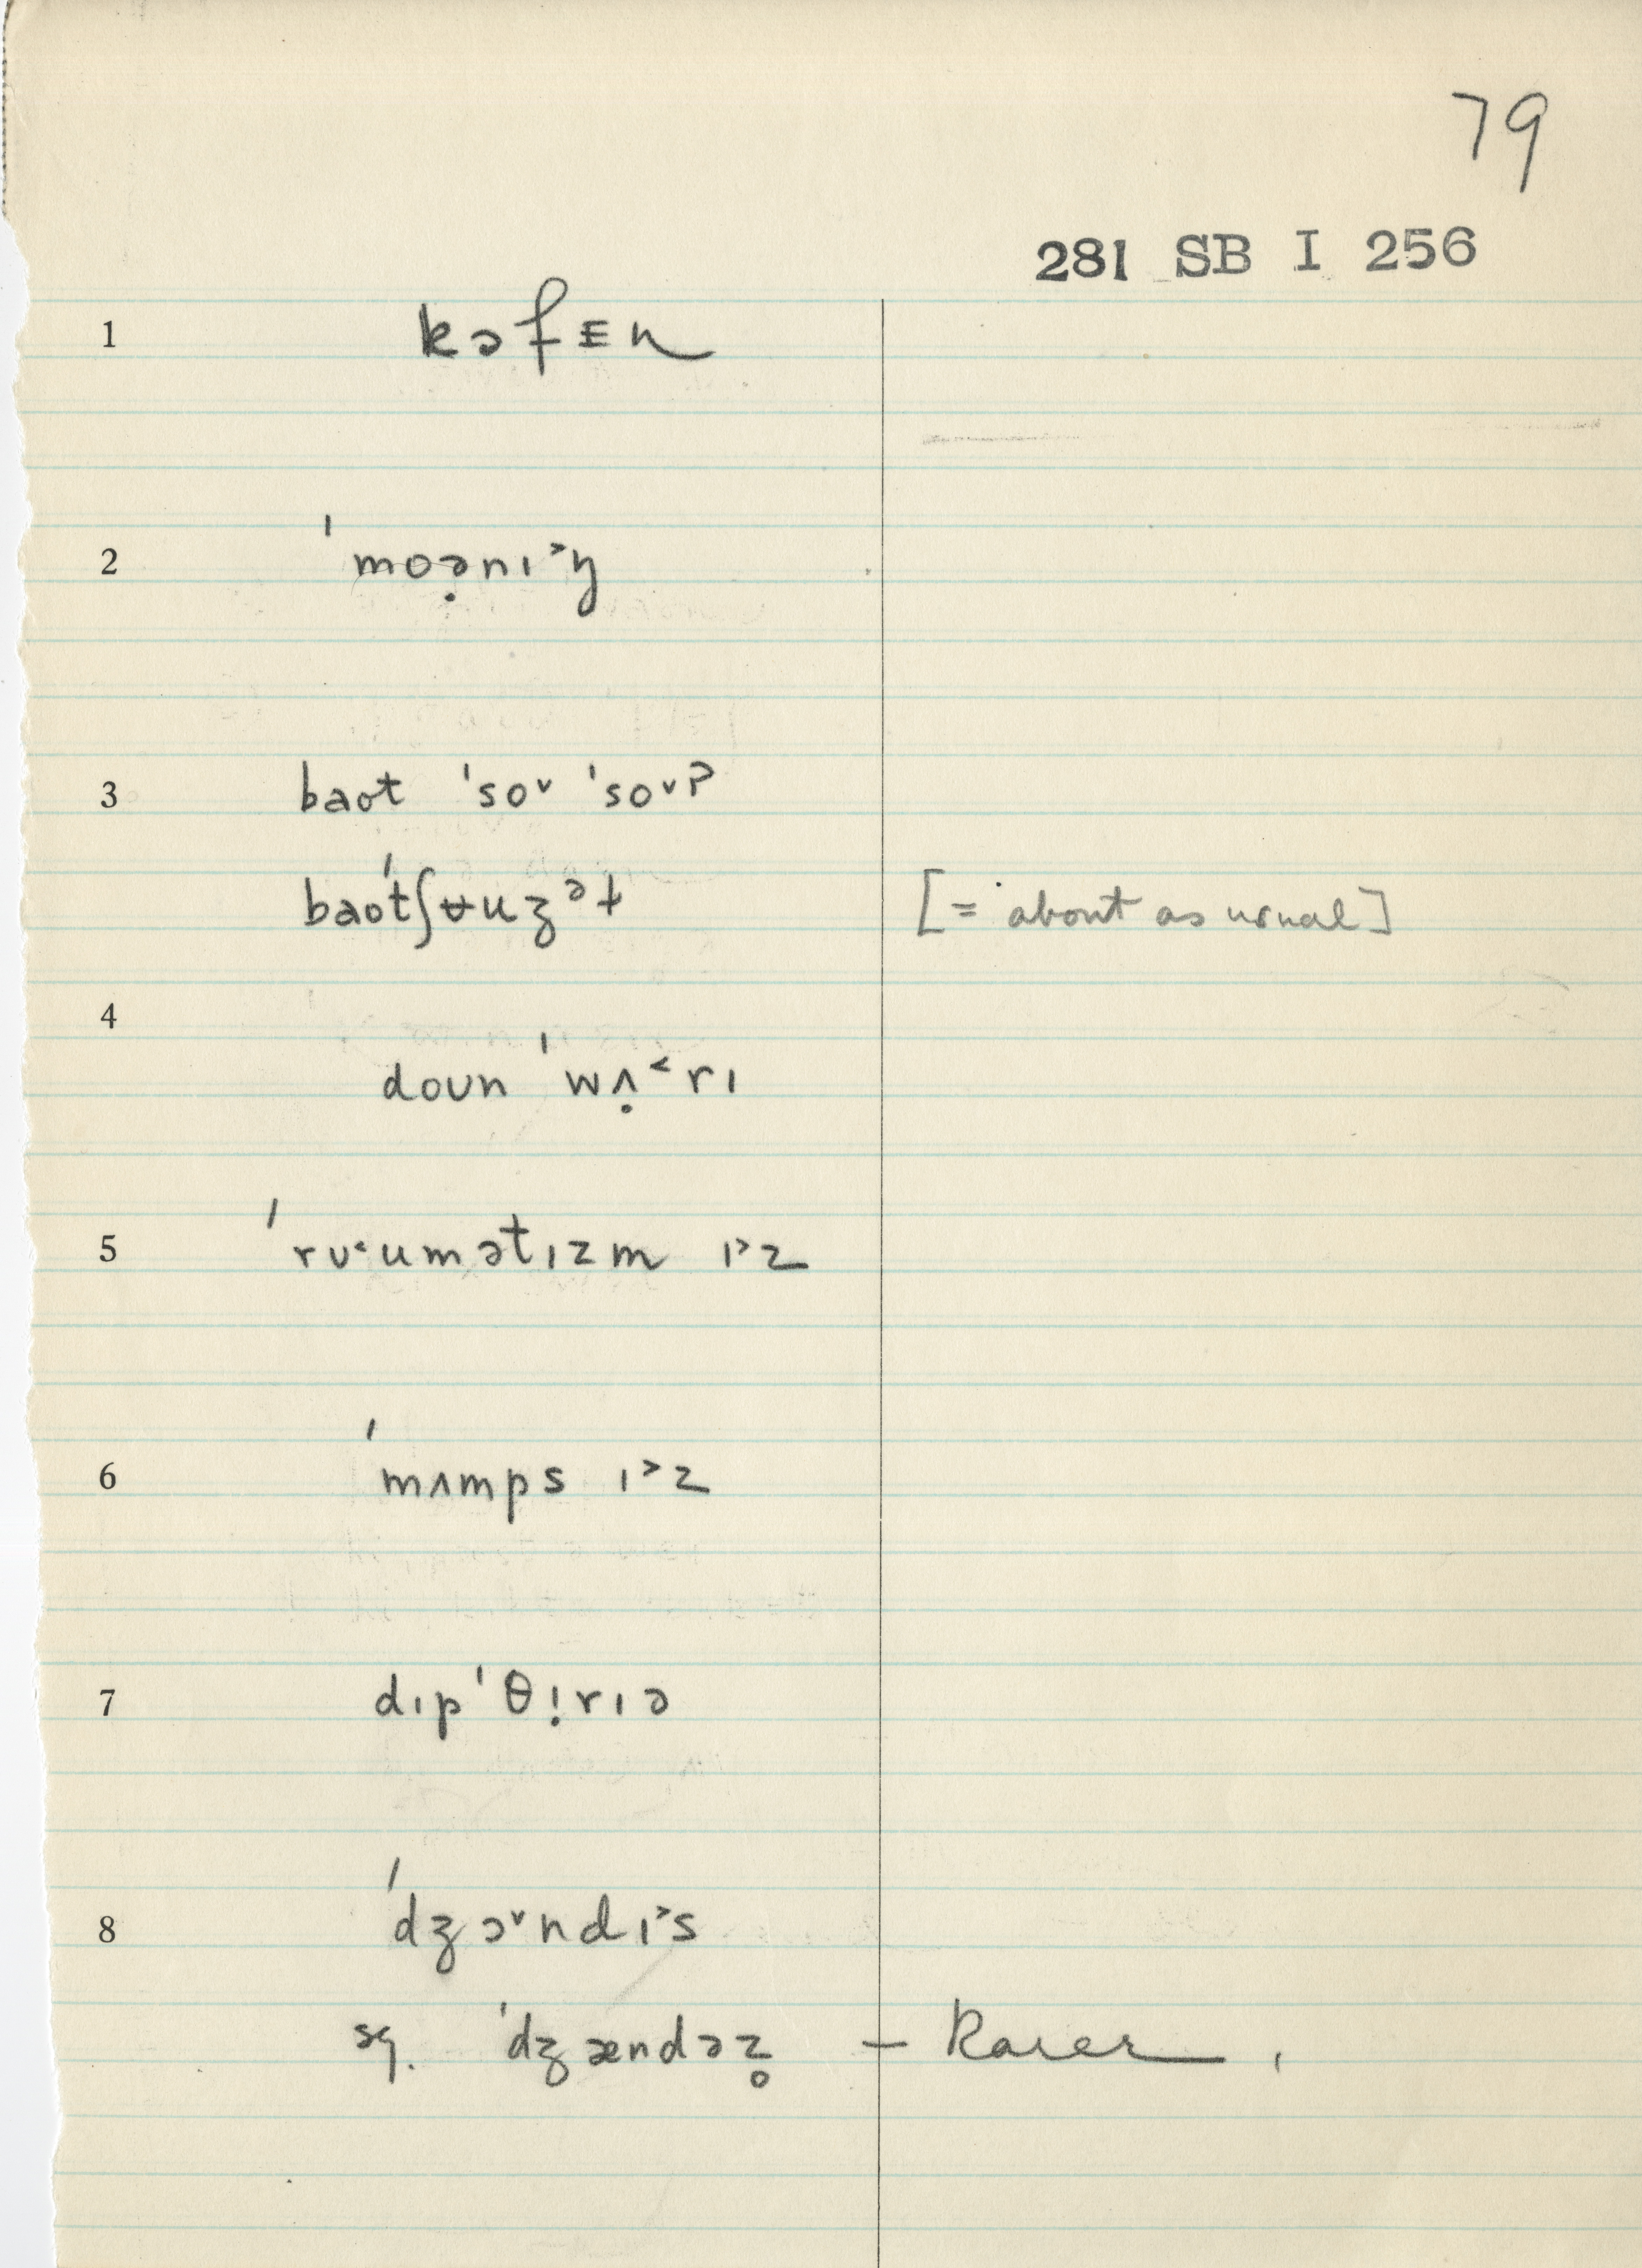 79
281 SB I 256
1 kəfɛn
2 ˈmoə̣nɪ˃ŋ
3 baot ˈso˅ ˈso˅?
baoˈtʃʉuʒᵊɫ [= about as usual]
4
doun ˈwʌ̣˂rɪ
5 ˈrʊ˂umətɪzm ɪ˃z
6 ˈmʌmps ɪ˃z
7 dɪpˈθɪ̣rɪə
8 ˈdʒɔ˅ndɪ˃s
sq. ˈdʒændəz̥ – Rarer.